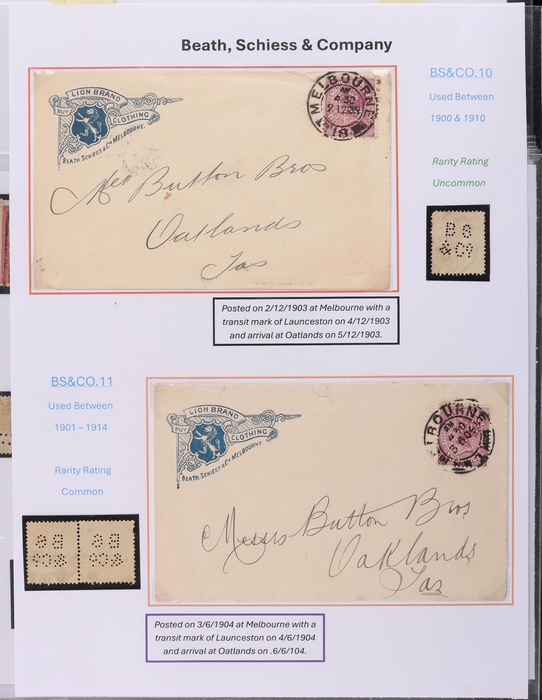 Beath, Schiess & Company
BS&CO.10
Used Between
1900 & 1910
Rarity Rating
Uncommon
LION BRAND
BUY CLOTHING
BEATH, SCHIESS & Co MELBOURNE.
MELBOURNE
4 30
2 12 03
Button Bros
Oatlands
Tas
Posted on 2/12/1903 at Melbourne with a
transit mark of Launceston on 4/12/1903
and arrival at Oatlands on 5/12/1903.
BS&CO.11
Used Between
1901 – 1914
Rarity Rating
Common
LION BRAND
BUY CLOTHING
BEATH, SCHIESS & Co MELBOURNE.
Messrs Button Bros
Oaklands
Tas
Posted on 3/6/1904 at Melbourne with a
transit mark of Launceston on 4/6/1904
and arrival at Oatlands on .6/6/104.